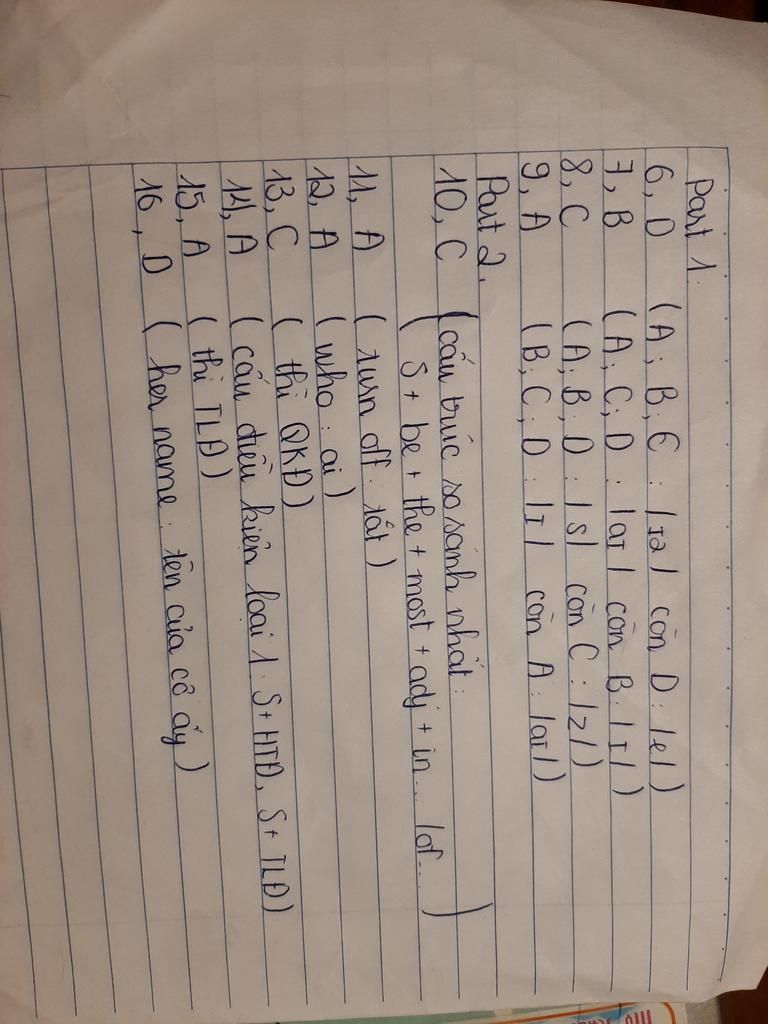 Part 1.
6, D ( A ; B ; C : /ɪə/ còn D : /e/ )
7, B ( A ; C ; D : /aɪ/ còn B : /ɪ/ )
8, C ( A ; B ; D : /s/ còn C : /z/ )
9, A ( B ; C ; D : /ɪ/ còn A : /aɪ/ )
Part 2.
10, C ( cấu trúc so sánh nhất :
( S + be + the + most + adj + in... /of... )
11, A ( turn off : tắt )
12, A ( who : ai )
13, C ( thì QKĐ )
14, A ( câu điều kiện loại 1 : S + HTĐ, S + TLĐ )
15, A ( thì TLĐ )
16, D ( her name : tên của cô ấy )